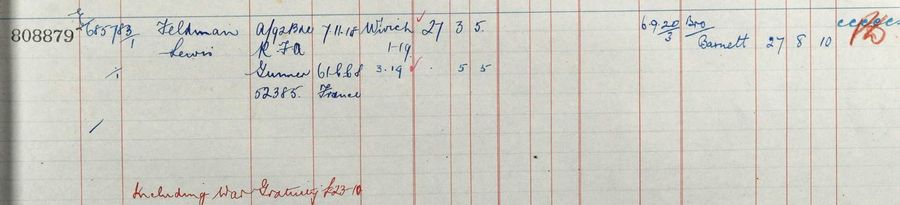 808879 685783/1 Feldman A/92 Bde 7.11.18 Wwich 27 3 5. 6 9.20/3 Bro
Lewis R F A 1-19 Barnett 27 8 10
Gunner 3.19 . 5 5
52385. France
Including War Gratuity £23-10